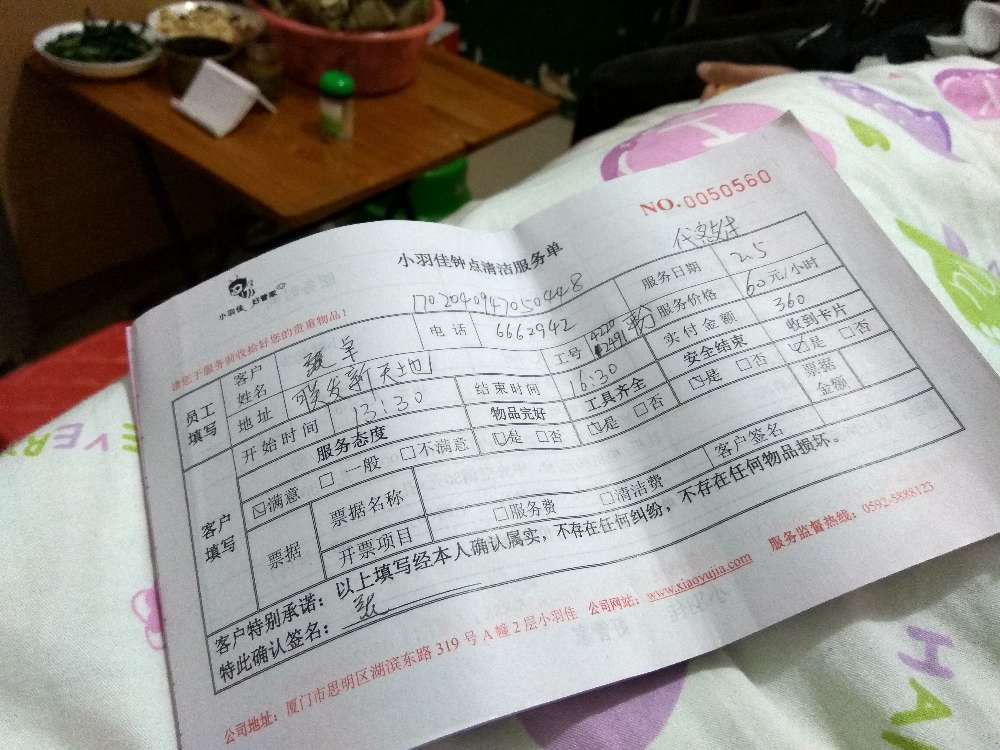 NO.0050560
小羽佳 好管家
小羽佳钟点清洁服务单
170204094705044８
请您于服务前收拾好您的贵重物品！
员工填写 客户姓名 张卓 电话 6662942 工号 服务日期 2.5
地址 联发新天地 服务价格 60元/小时
开始时间 13:30 结束时间 16:30 实付金额 360
客户填写 服务态度 物品完好 工具齐全 安全结束 收到卡片
☑满意 □一般 □不满意 ☑是 □否 ☑是 □否 ☑是 □否 ☑是 □否
票据 票据名称 票据金额
开票项目 □服务费 □清洁费 客户签名
客户特别承诺：以上填写经本人确认属实，不存在任何纠纷，不存在任何物品损坏。
特此确认签名： 张
公司地址：厦门市思明区湖滨东路319号A幢2层小羽佳 公司网站：www.xiaoyujia.com 服务监督热线：0592-5888123
EVER
HA